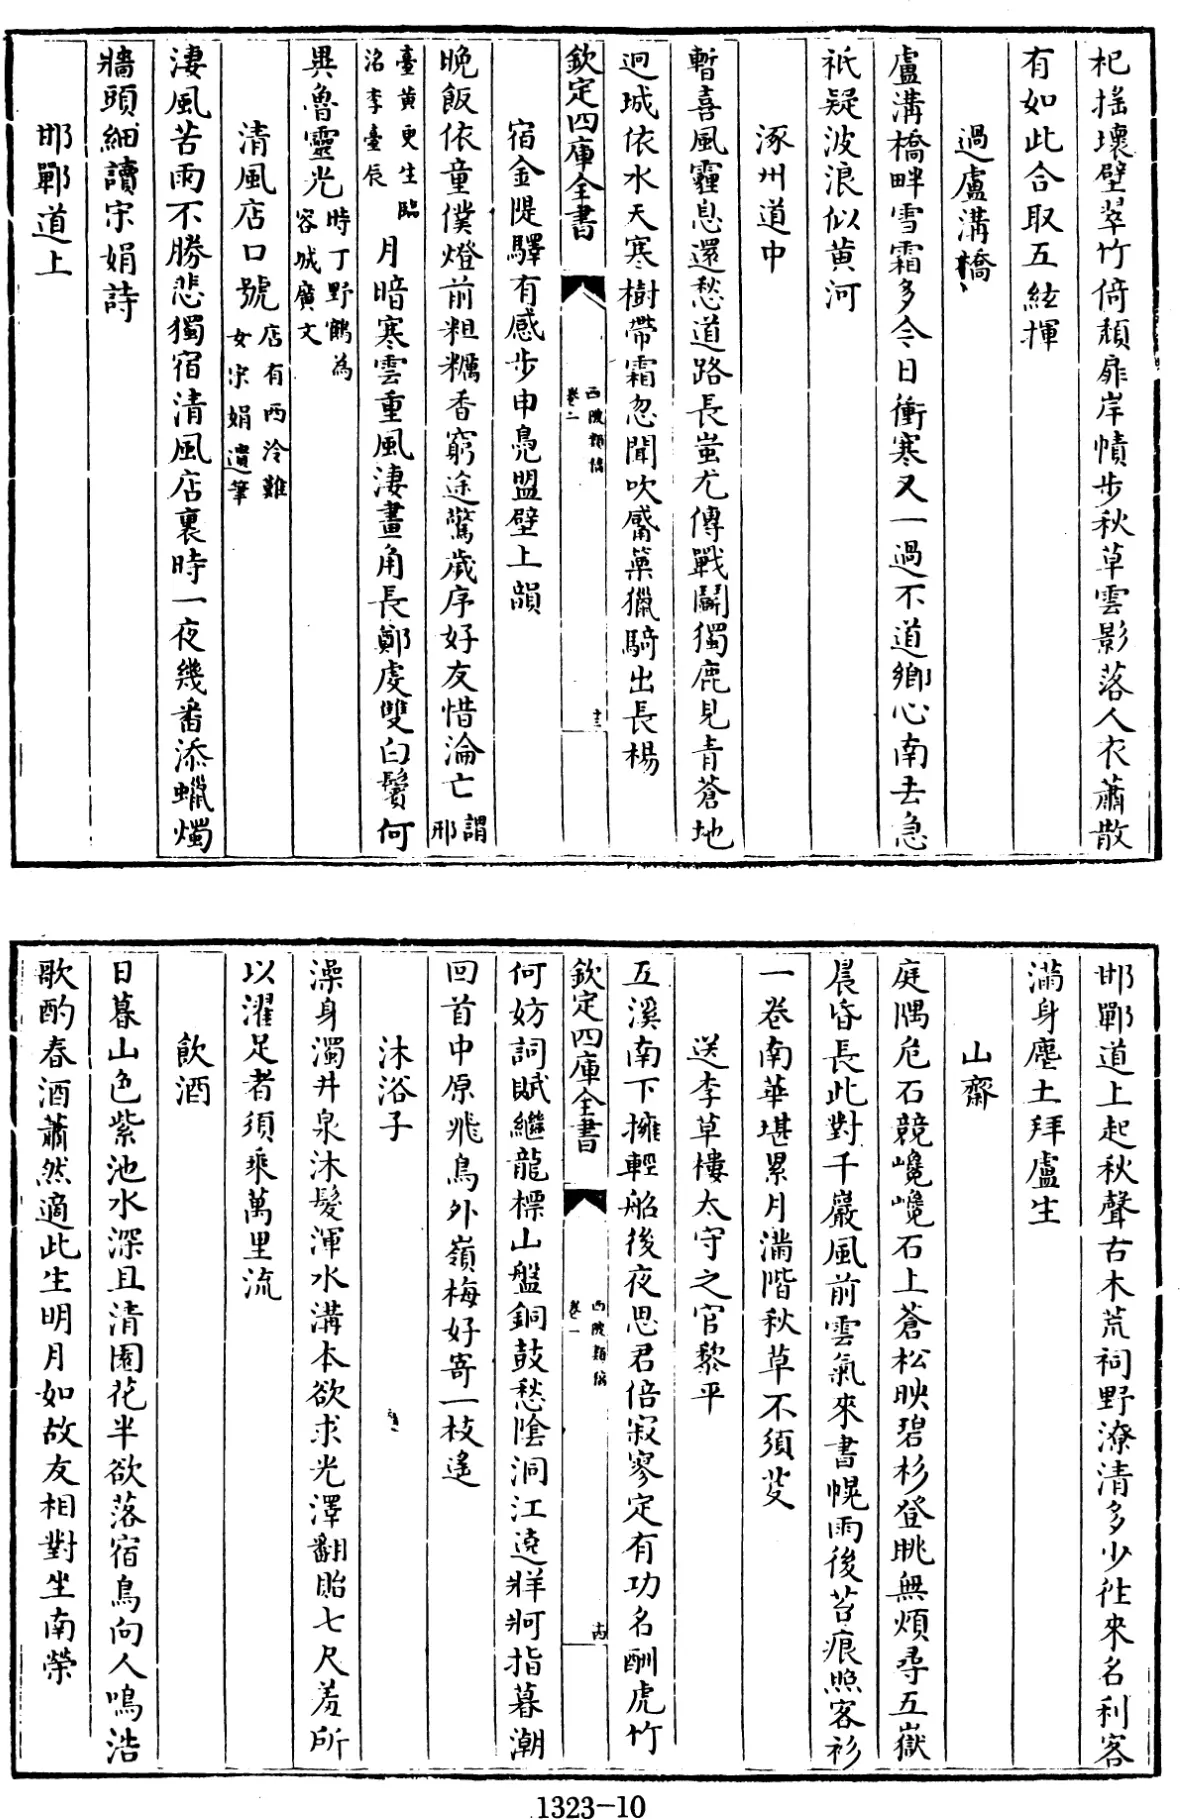 杞搖壞壁翠竹倚頹扉岸幘步秋草雲影落人衣蕭散
有如此合取五絃揮
過盧溝橋
盧溝橋畔雪霜多今日衝寒又一過不道鄉心南去急
祇疑波浪似黄河
涿州道中
暫喜風霾息還愁道路長蚩尤傳戰鬬獨鹿見青蒼地
迥城依水天寒樹帶霜忽聞吹觱篥獵騎出長楊
欽定四庫全書
西陂類稿
卷二
十三
宿金隄驛有感步申鳧盟壁上韻
晚飯依童僕燈前粗糲香窮途驚歲序好友惜淪亡謂邢
臺黄更生臨
洺李臺辰
月暗寒雲重風淒畫角長鄭虔雙白鬢何
異魯靈光時丁野鶴為
容城廣文
清風店口號店有西泠難
女宋娟遺筆
淒風苦雨不勝悲獨宿清風店裏時一夜幾番添蠟燭
牆頭細讀宋娟詩
邯鄲道上
邯鄲道上起秋聲古木荒祠野潦清多少徃來名利客
滿身塵土拜盧生
山齋
庭隅危石競巉巉石上蒼松映碧杉登眺無煩尋五嶽
晨昏長此對千巖風前雲氣來書幌雨後苔痕照客衫
一卷南華堪累月滿階秋草不須芟
送李草樓太守之官黎平
五溪南下擁輕船後夜思君倍寂寥定有功名酬虎竹
欽定四庫全書
西陂類稿
卷一
十四
何妨詞賦繼龍標山盤銅鼓愁陰洞江遶牂牁指暮潮
回首中原飛鳥外嶺梅好寄一枝遙
沐浴子
澡身濁井泉沐髮渾水溝本欲求光澤翻貽七尺羞所
以濯足者須乘萬里流
飲酒
日暮山色紫池水深且清園花半欲落宿鳥向人鳴浩
歌酌春酒蕭然適此生明月如故友相對坐南榮
1323-10